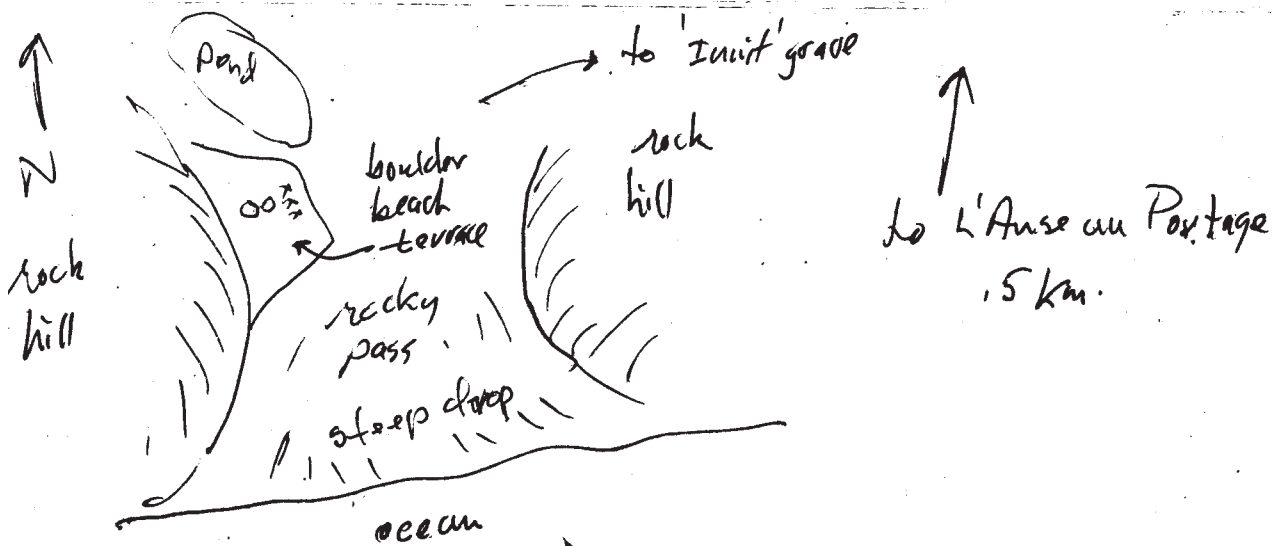 Pond
to 'Inuit' grave
N
rock
hill
boulder
beach
terrace
rock
hill
to L'Anse au Portage
.5 km.
rocky
pass
steep drop
ocean